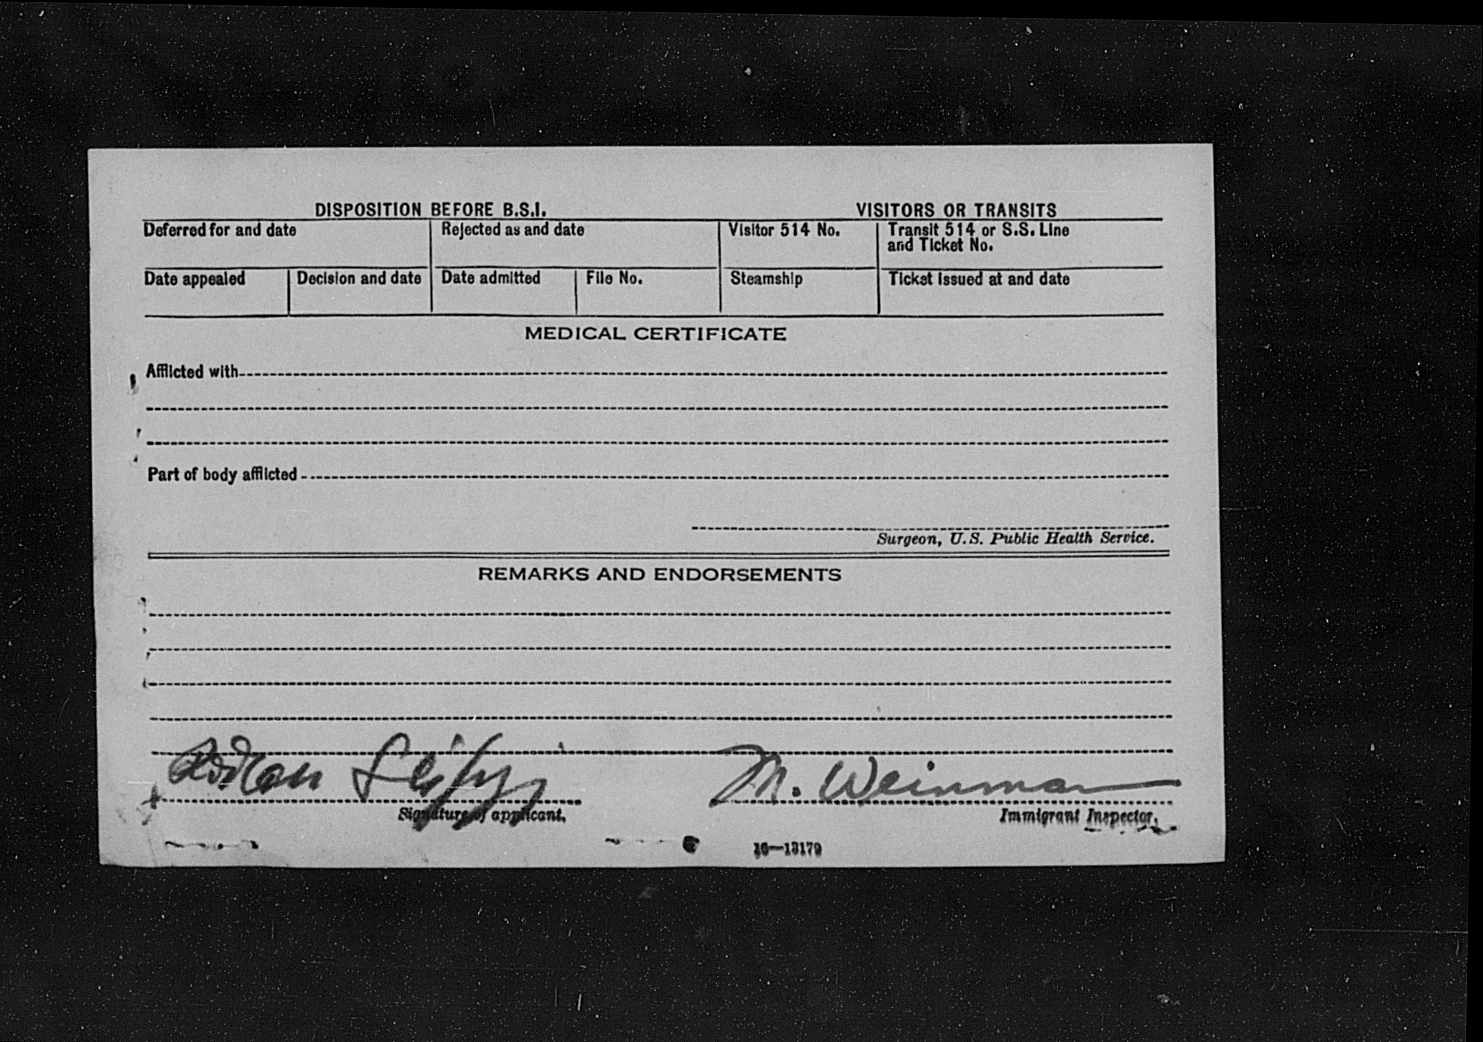 DISPOSITION BEFORE B.S.I. VISITORS OR TRANSITS
Deferred for and date Rejected as and date Visitor 514 No. Transit 514 or S.S. Line
and Ticket No.
Date appealed Decision and date Date admitted File No. Steamship Ticket issued at and date
MEDICAL CERTIFICATE
Afflicted with
Part of body afflicted
Surgeon, U.S. Public Health Service.
REMARKS AND ENDORSEMENTS
M. Weinman
Signature of applicant. Immigrant Inspector.
16—13179